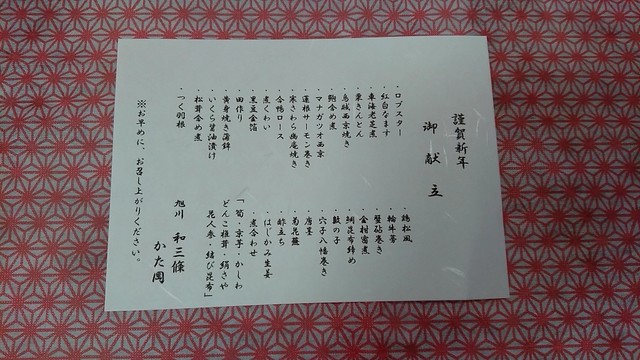 謹賀新年
御献立
・ロブスター
・紅白なます
・車海老芝煮
・栗きんとん
・烏賊西京焼き
・鮑含め煮
・マナガツオ西京
・蓮根サーモン巻き
・寒さわら幽庵焼き
・合鴨ロース
・煮くわい
・黒豆金箔
・田作り
・黄身焼き蒲鉾
・いくら醤油漬け
・松茸含め煮
・つく羽根
・鶏松風
・輪牛蒡
・蟹砧巻き
・金柑蜜煮
・鯛昆布締め
・数の子
・穴子八幡巻き
・唐墨
・菊花蕪
・酢立ち
・はじかみ生姜
・煮合わせ
「筍・京芋・かしわ
どんこ椎茸・絹さや
花人参・結び昆布」
旭川 和三條
かた岡
※お早めに、お召し上がりください。